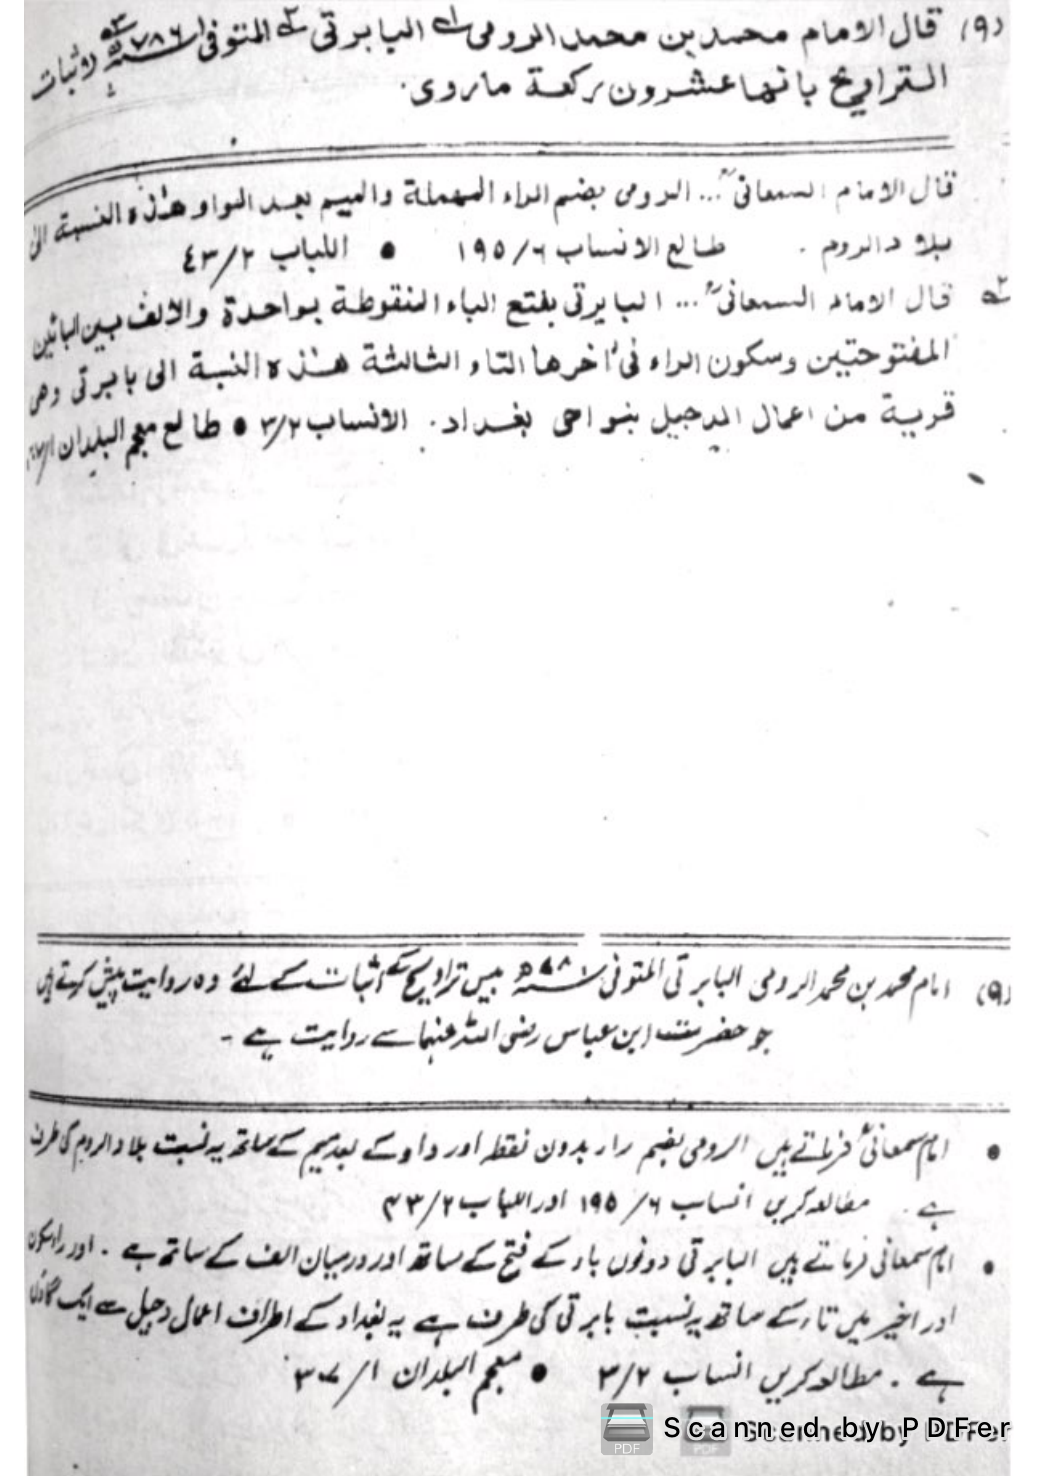 (٩) قال الامام محمد بن محمد الرومی ؎۱ البابرتی ؎۲ المتوفی ۷۸۶ھ ؎۳ واثبات
التراویح بانها عشرون رکعة ماروی.
قال الامام السمعانیؒ ... الرومی بضم الراء المهملة والمیم بعد الواو هذه النسبة الی
بلاد الروم . طالع الانساب ١٩٥/٦ ● اللباب ٤٣/٢
؎۲ قال الامام السمعانیؒ ... البابرتی بفتح الباء المنقوطة بواحدة والالف بین البائین
المفتوحتین وسکون الراء فی اخرها التاء الثالثة هذه النسبة الی بابرتی وهی
قریة من اعمال الدجیل بنواحی بغداد. الانساب ٣/٢ ● طالع معجم البلدان
(٩) امام محمد بن محمد الرومی البابرتی المتوفی بیس تراویح کے اثبات کے لئے وہ روایت پیش کرتے ہیں
جو حضرت ابن عباس رضی اللہ عنہما سے روایت ہے ۔
● امام سمعانیؒ فرماتے ہیں الرومی بضم راء بدون نقطہ اور واو کے بعد میم کے ساتھ یہ نسبت بلاد الروم کی طرف
ہے ۔ مطالعہ کریں انساب ۶/ ۱۹۵ اور اللباب ۴۳/۲
● امام سمعانی فرماتے ہیں البابرتی دونوں باء کے فتح کے ساتھ اور درمیان الف کے ساتھ ہے . اور راء سکون
اور اخیر میں تاء کے ساتھ یہ نسبت بابرتی کی طرف ہے یہ بغداد کے اطراف اعمال دجیل سے ایک گاؤں
ہے . مطالعہ کریں انساب ۳/۲ ● معجم البلدان ۳۰۷/۱
Scanned by PDFer
Scanned by PDFer